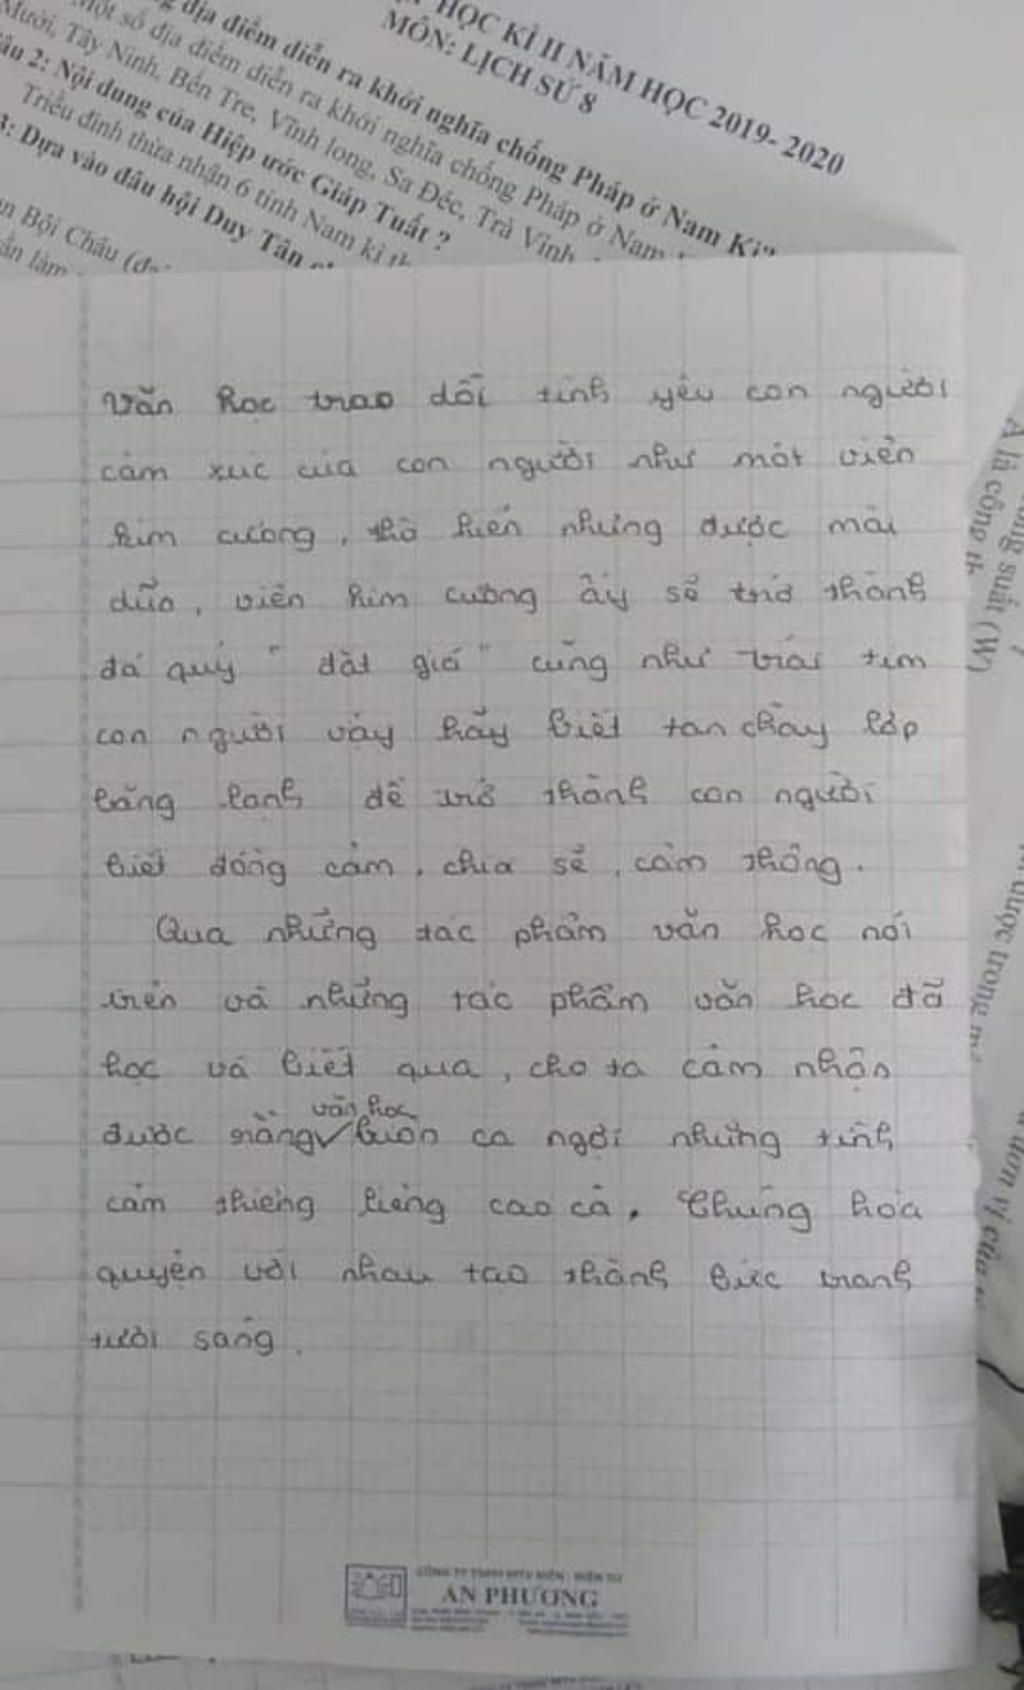 HỌC KÌ II NĂM HỌC 2019- 2020
MÔN: LỊCH SỬ 8
địa điểm diễn ra khởi nghĩa chống Pháp ở Nam Kì?
một số địa điểm diễn ra khởi nghĩa chống Pháp ở Nam
Mười, Tây Ninh, Bến Tre, Vĩnh long, Sa Đéc, Trà Vinh
2: Nội dung của Hiệp ước Giáp Tuất ?
Triều đình thừa nhận 6 tỉnh Nam kì
3: Dựa vào đâu hội Duy Tân
Bội Châu
văn học trao dồi tình yêu con người
cảm xúc của con người như một viên
kim cương, thô kiến nhưng được mài
dũa, viên kim cương ấy sẽ trở thành
đá quý " đắt giá " cũng như trái tim
con người vậy hãy biết tan chảy lớp
băng lạnh để trở thành con người
biết đồng cảm, chia sẻ, cảm thông.
Qua những tác phẩm văn học nói
trên và những tác phẩm văn học đã
học và biết qua, cho ta cảm nhận
được rằng văn học luôn ca ngợi những tình
cảm thiêng liêng cao cả. Chúng hòa
quyện với nhau tạo thành bức tranh
tươi sáng.
A là công
suất (W)
được trong
đơn vị của
AN PHƯƠNG